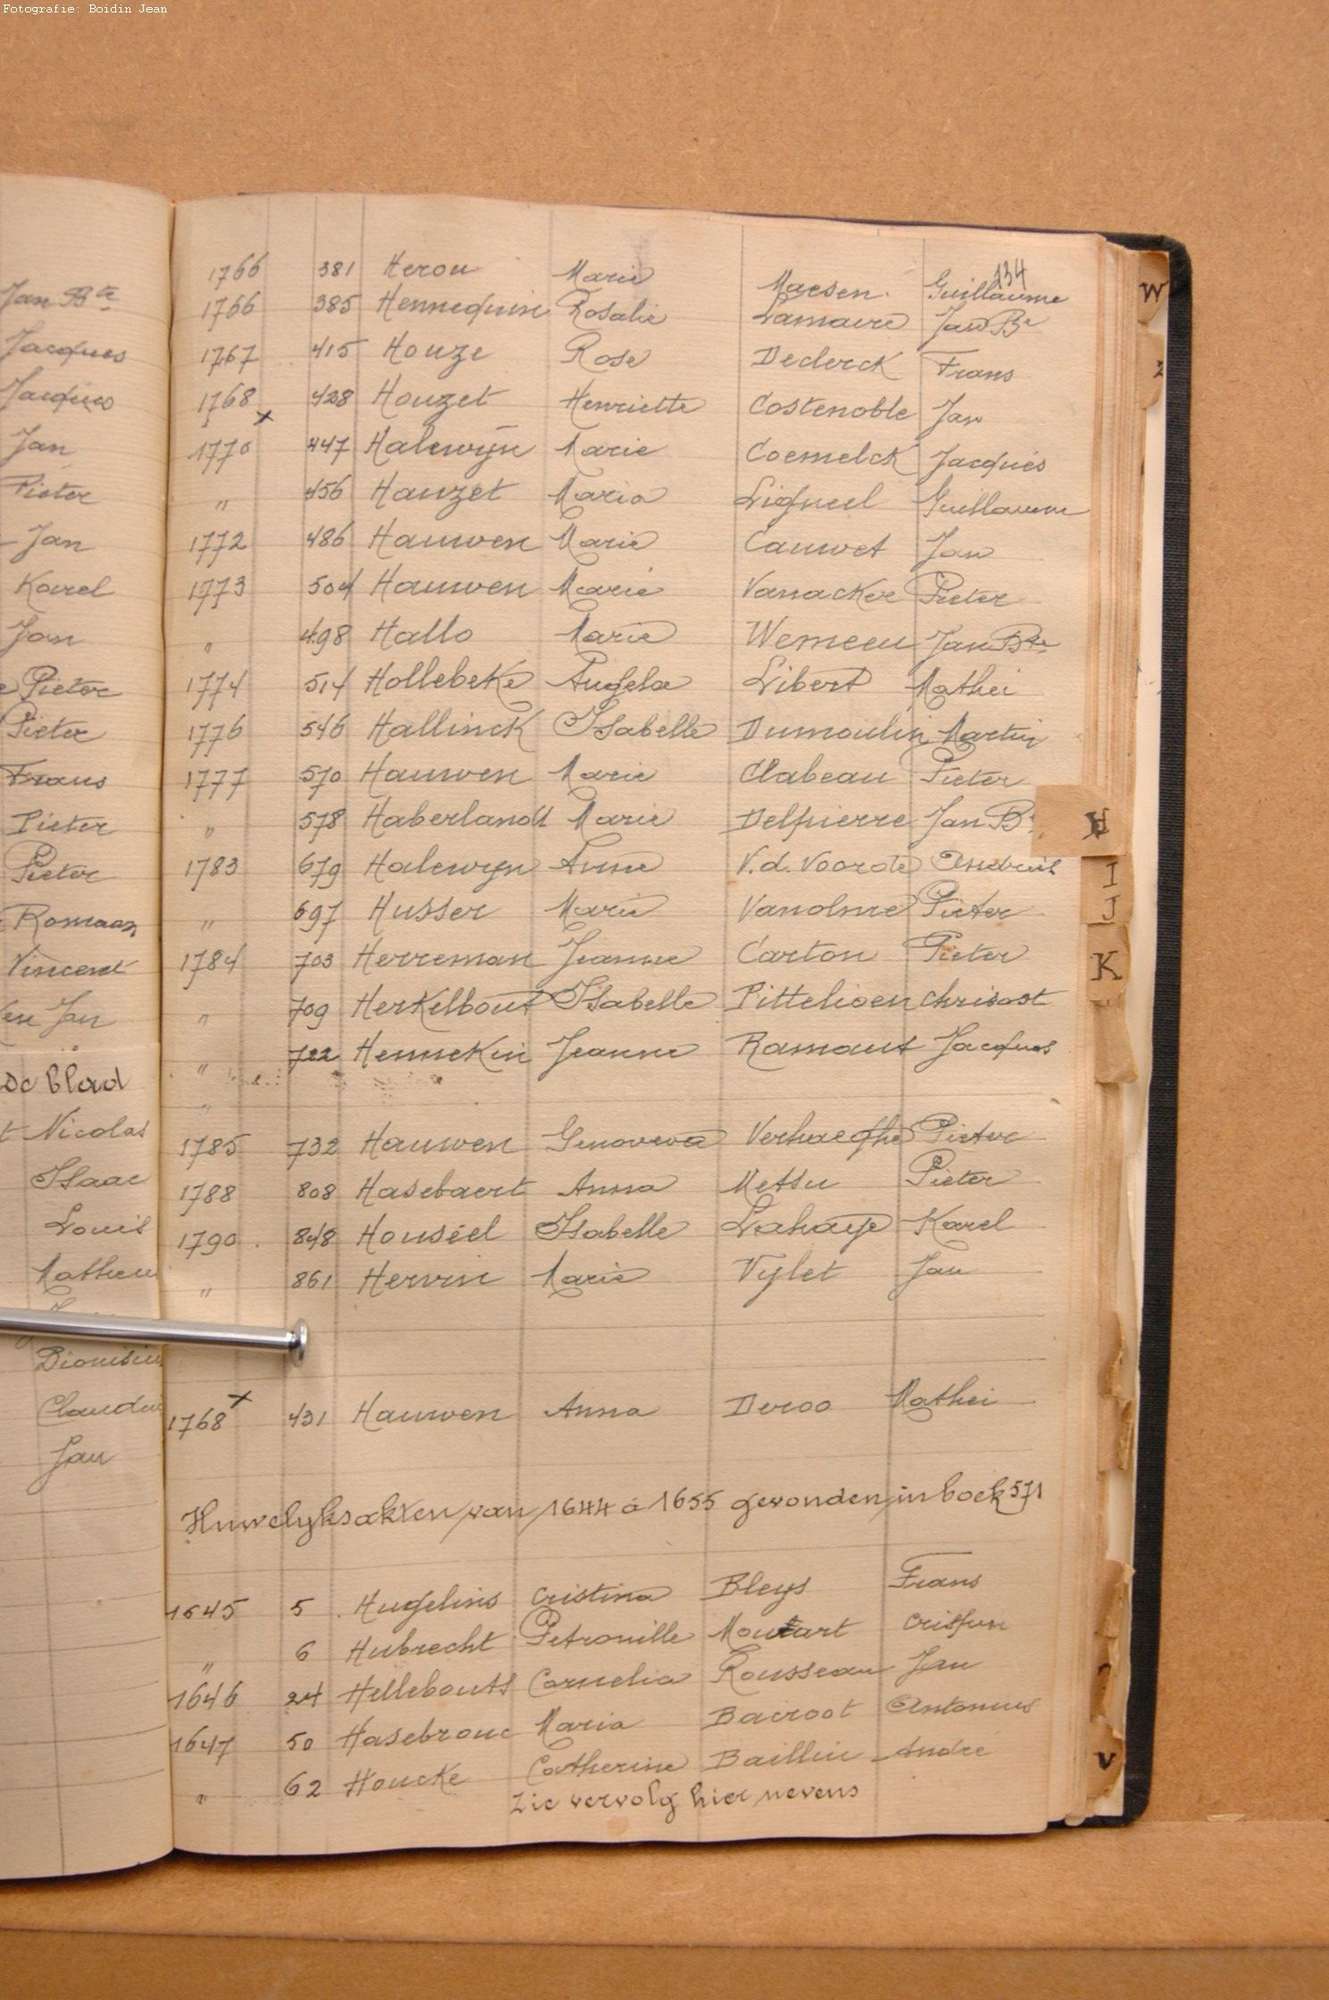 Fotografie: Boidin Jean
134
Jan Bte
Jacques
Jacques
Jan
Pieter
Jan
Karel
Jan
Pieter
Pieter
Frans
Pieter
Pieter
Romaan
Vincent
Jan
blad
Nicolas
Isaac
Louis
Mathieu
Dionisiu
Claudiu
Jan
1766 381 Herou Marie Maesen Guillaume
1766 385 Hennequin Rosalie Lamaire Jan Bte
1767 415 Houze Rose Declerck Frans
1768 x 428 Houzet Henriette Costenoble Jan
1770 447 Halewijn Marie Coemelck Jacques
" 456 Hauzet Maria Liqueel Guillaume
1772 486 Hauwen Marie Cauwet Jan
1773 504 Hauwen Marie Vanacker Pieter
" 498 Hallo Marie Wemeeu Jan Bte
1774 514 Hollebeke Angela Libert Mathei
1776 546 Hallinck Isabelle Dumoulin Martin
1777 570 Hauwen Marie Clabeau Pieter
" 578 Haberlandt Marie Delpierre Jan Bt
1783 679 Halewyn Anna V.d. Voorde
" 697 Husser Marie Vanolme Pieter
1784 703 Herreman Jeanne Carton Pieter
" 709 Herkelbout Isabelle Pittelioen Chrisost
" 722 Hennekin Jeanne Ramaut Jacques
"
1785 732 Hauwen Genoveva Verhaeghe Pieter
1788 808 Hasebaert Anna Messu Pieter
1790 848 Houséel Isabelle Lahaye Karel
" 861 Hervin Marie Vylet Jan
1768 x 431 Hauwen Anna Deroo Mathei
Huwelyksakten van 1644 à 1655 gevonden in boek 571
1645 5 Hugelins Cristina Bleys Frans
" 6 Hubrecht Petronille Moutart Crispin
1646 24 Hellebouts Cornelia Rousseau Jan
1647 50 Hasebrouc Maria Bacroot Antonius
" 62 Houcke Catherine Baillin Andre
Zie vervolg hier nevens
W
Z
H
I
J
K
V